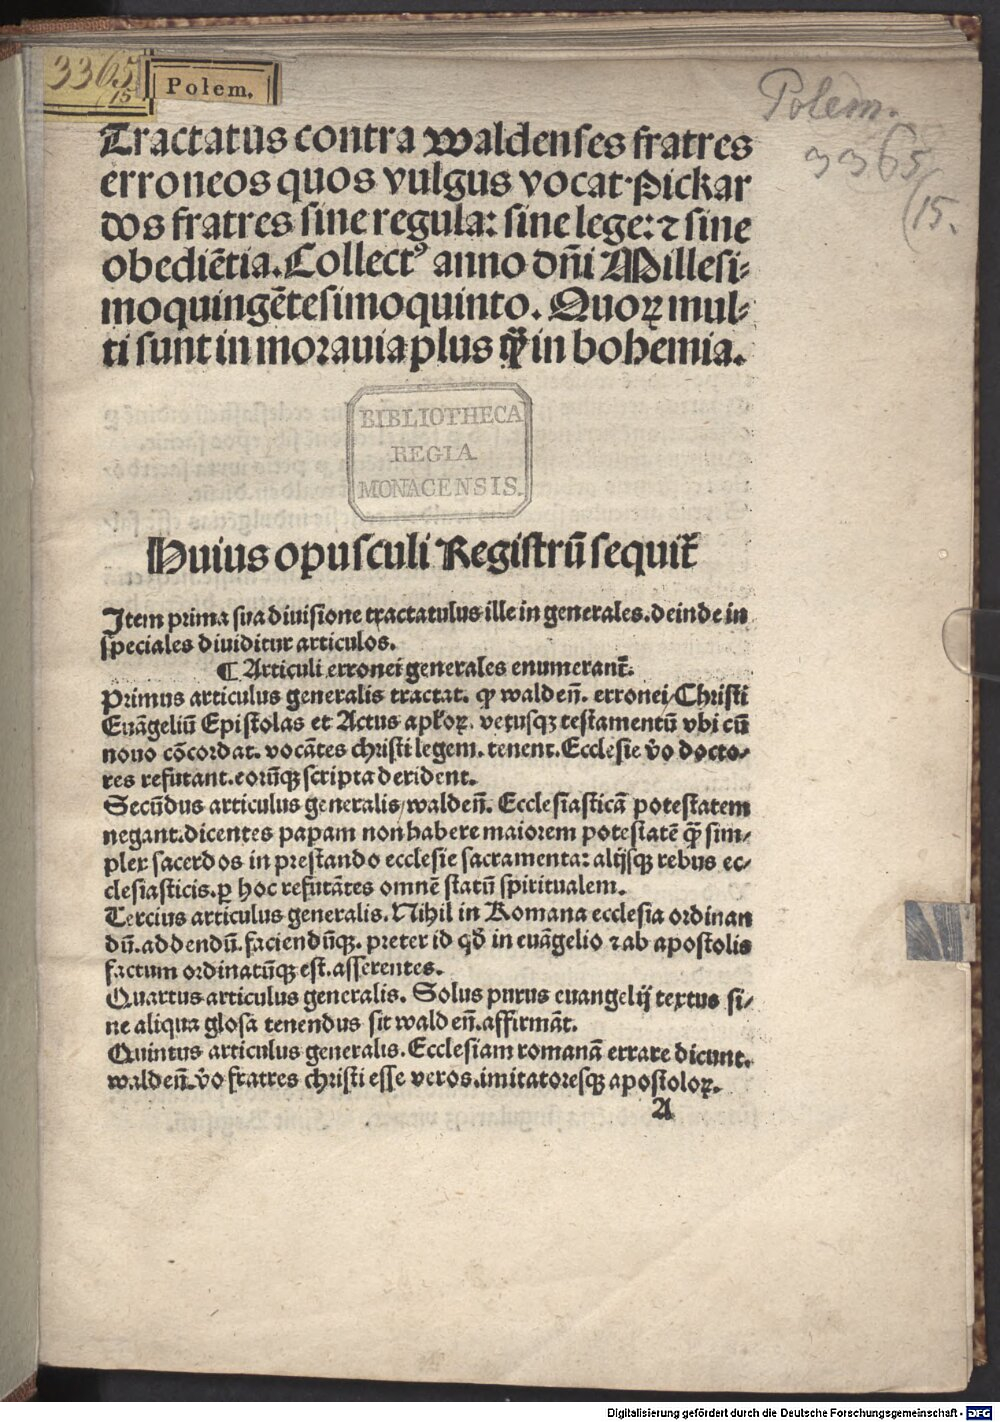 3365
/15
Polem.
Polem.
3365
/15.
Tractatus contra Waldenses fratres
erroneos quos vulgus vocat Pickar
dos fratres sine regula: sine lege: ⁊ sine
obediētia. Collectꝰ anno dñi Millesi⸗
moquingētesimoquinto. Quoꝝ mul⸗
ti sunt in morauia plus q̄ꝫ in bohemia.
BIBLIOTHECA
REGIA
MONACENSIS.
Huius opusculi Registrū sequit̄
Item prima sua diuisione tractatulus ille in generales. deinde in
speciales diuiditur articulos.
¶ Articuli erronei generales enumerant̄.
Primus articulus generalis tractat. ꝙ walden̄. erronei/Christi
Euāgeliū Epistolas et Actus aplōꝝ. vetusqꝫ testamentū vbi cū
nouo cōcordat. vocātes christi legem. tenent. Ecclesie v̄o docto⸗
res refutant. eorūqꝫ scripta derident.
Secūdus articulus generalis/walden̄. Ecclesiasticā potestatem
negant. dicentes papam non habere maiorem potestatē q̄ꝫ sim⸗
plex sacerdos in prestando ecclesie sacramenta: alijsqꝫ rebus ec⸗
clesiasticis. ꝑ hoc refutātes omnē statū spiritualem.
Tercius articulus generalis. Nihil in Romana ecclesia ordinan
dū. addendū. faciendūqꝫ. preter id qd̄ in euāgelio ⁊ ab apostolis
factum ordinatūqꝫ est. asserentes.
Quartus articulus generalis. Solus purus euangelij textus si⸗
ne aliqua glosa tenendus sit walden̄. affirmāt.
Quintus articulus generalis. Ecclesiam romanā errare dicunt.
walden̄. v̄o fratres christi esse veros. imitatoresqꝫ apostoloꝝ.
A
Digitalisierung gefördert durch die Deutsche Forschungsgemeinschaft - DFG